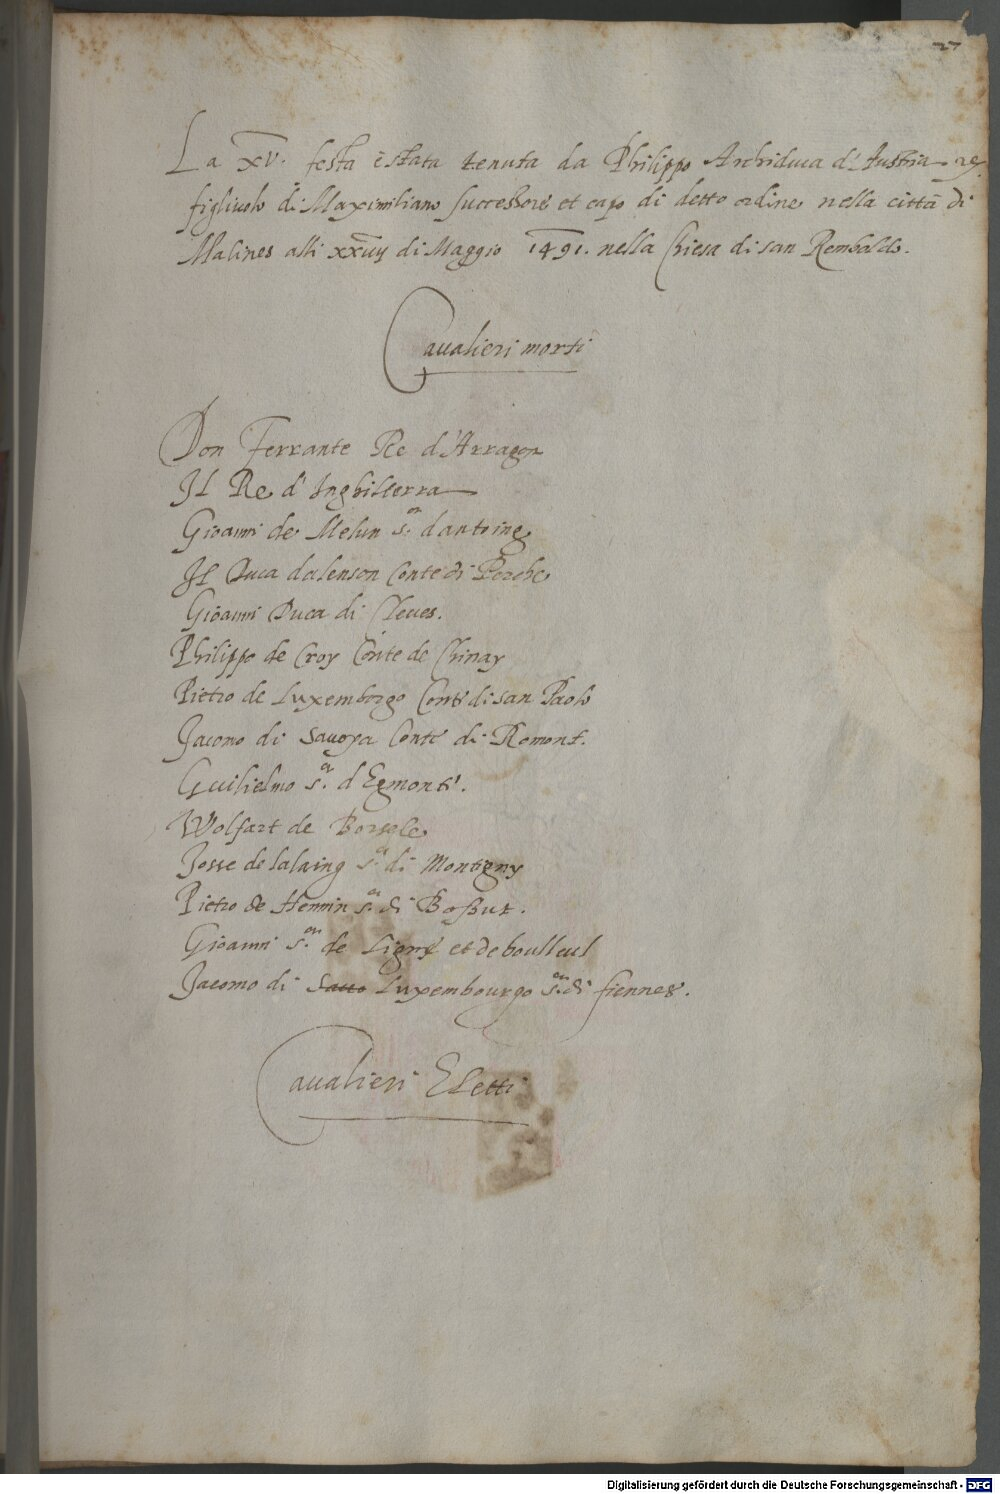 27
La XV. festa è stata tenuta da Philippo Archiduca d'Austria
figliuolo di Maximiliano successore et capo di detto ordine nella città di
Malines alli xxiiij di Maggio 1491. nella Chiesa di san Rombaldo.
Caualieri morti
Don Ferrante Re d'Arragon
Il Re d'Inghilterra
Gioanni de Melun s.or dantoing
Il Duca dalenson Conte di Perche
Gioanni Duca di Cleues.
Philippo de Croy Conte de Chimay
Pietro de Luxemborgo Conte di san Paolo
Jacomo di Sauoya Conte di Romont.
Guilielmo s.or d Egmont.
Wolfart de Borsele
Josse de lalaing s.or di Montigny
Pietro de Hennin s.or di Bossut.
Gioanni s.or de Ligne et de boulleul
Jacomo di Luxembourgo s.or di fiennes.
Caualieri Eletti
Digitalisierung gefördert durch die Deutsche Forschungsgemeinschaft - DFG